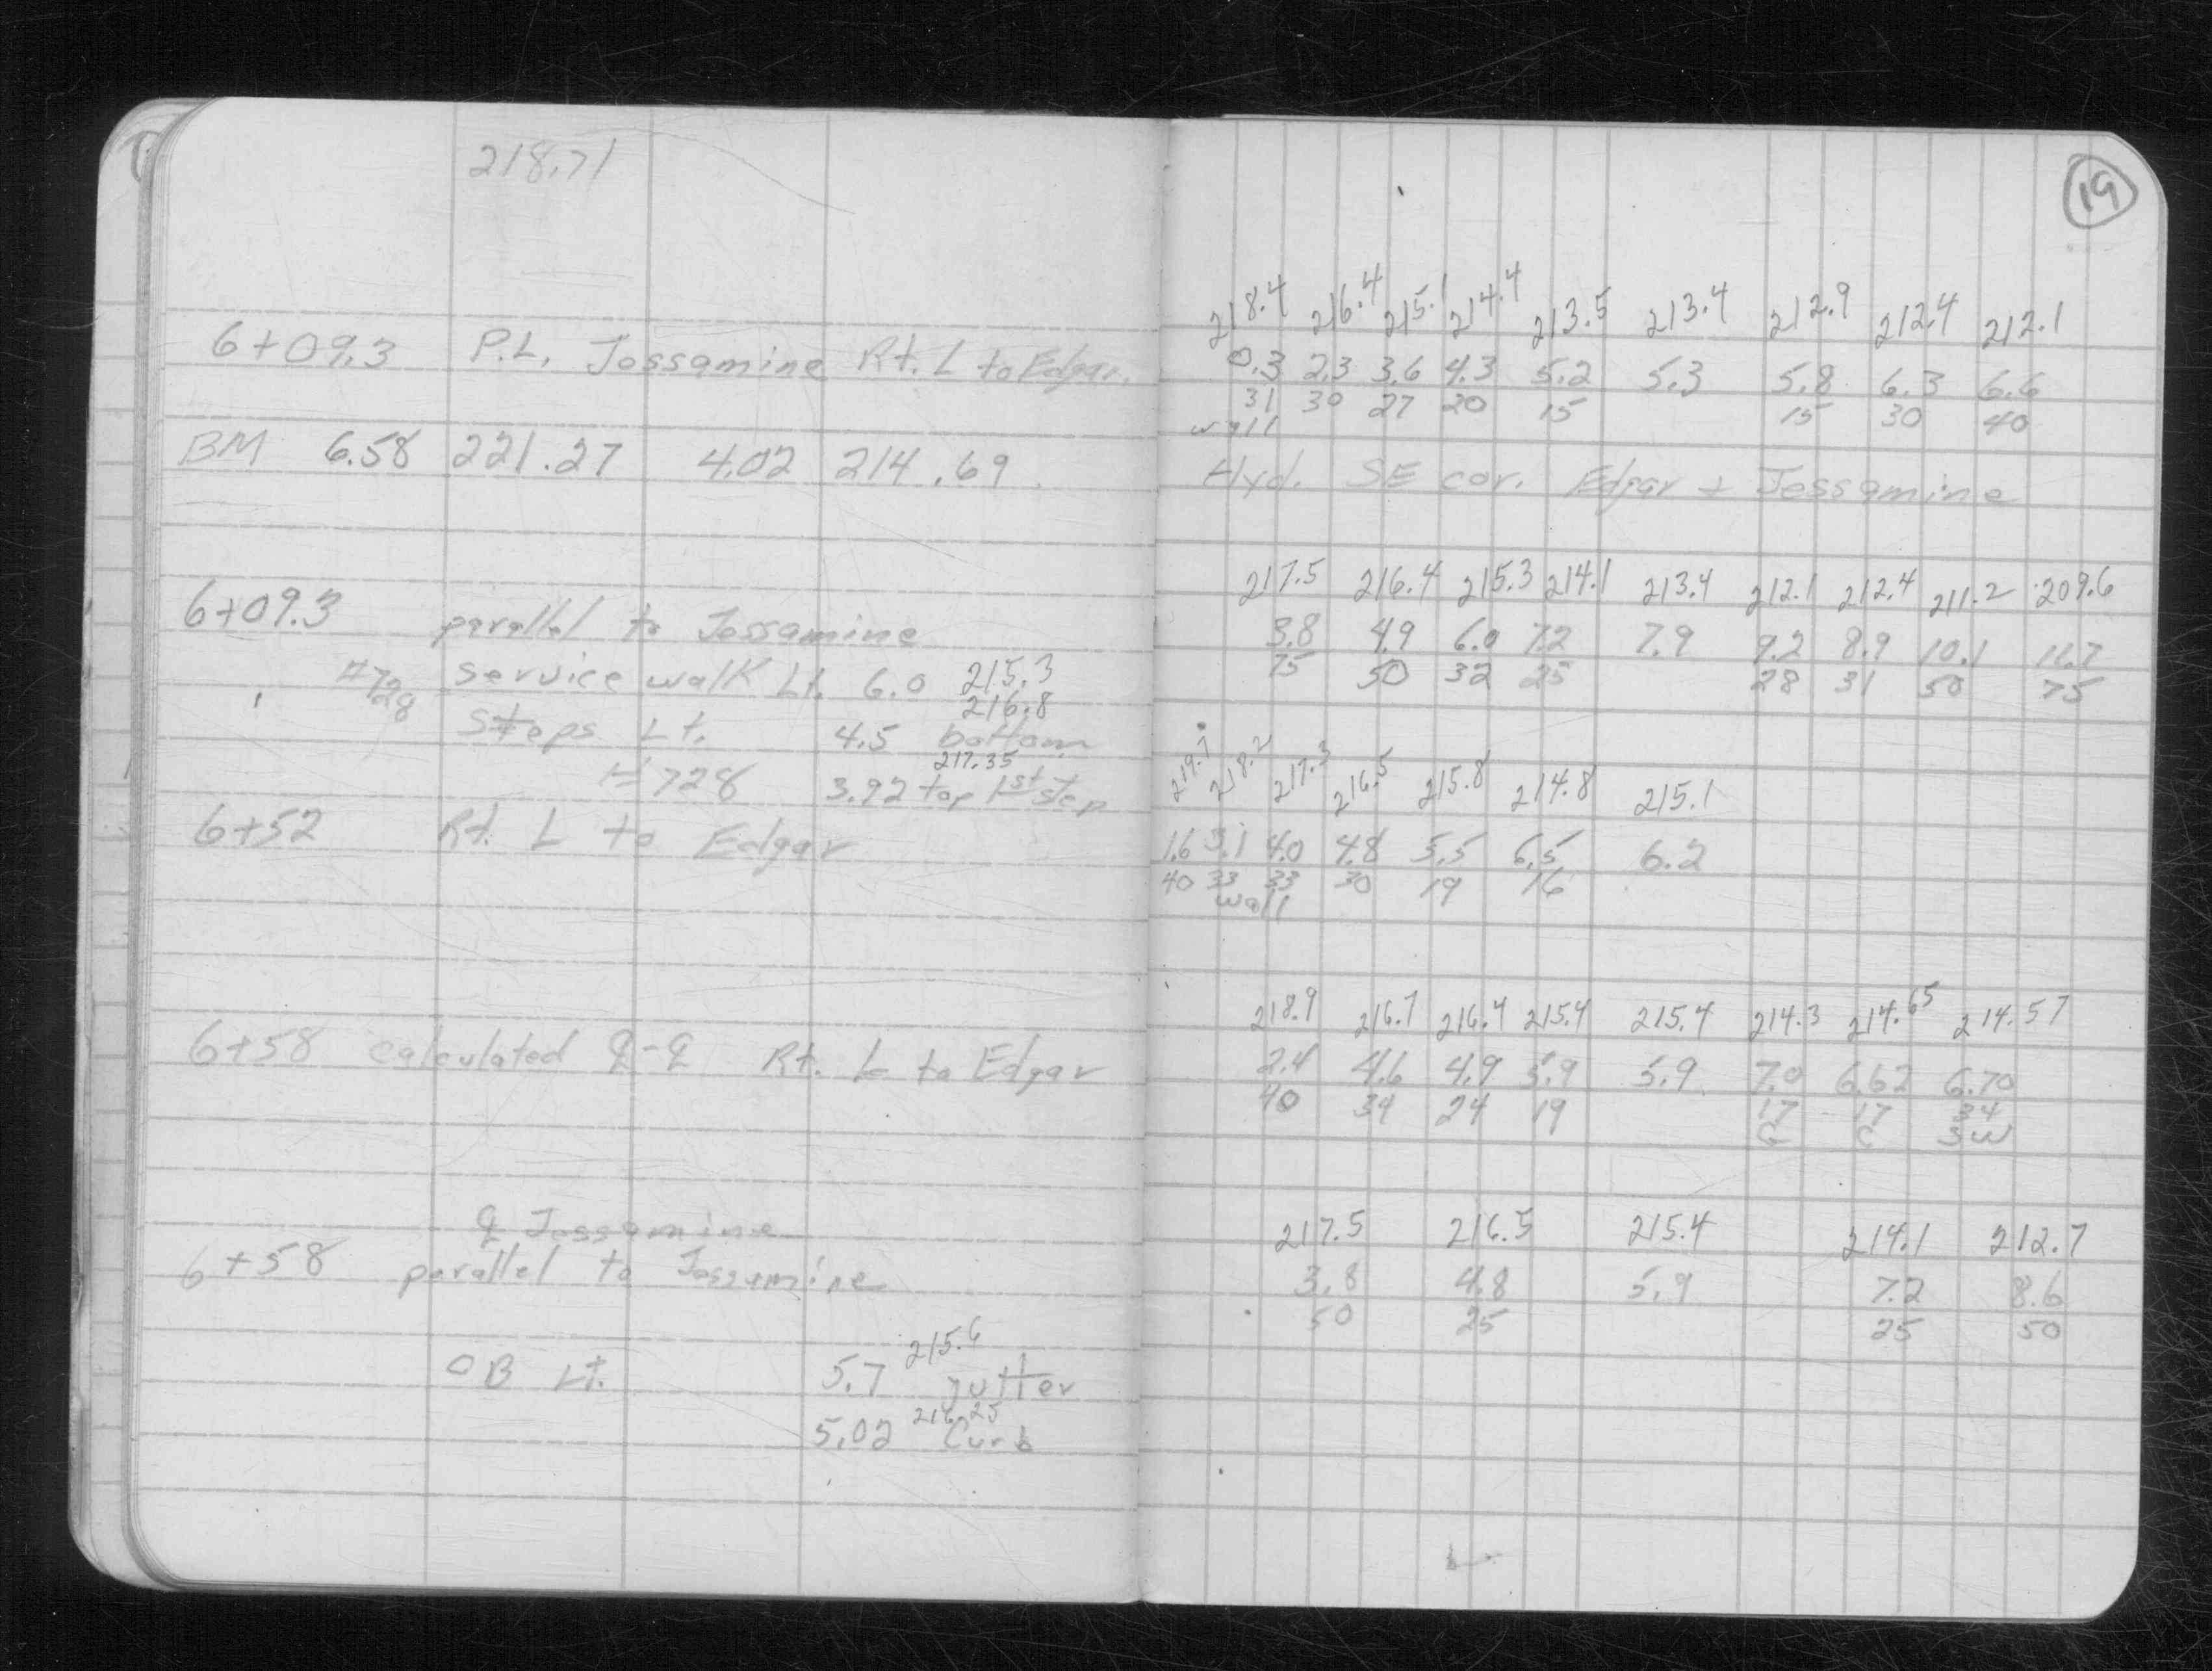 218.71
6+09.3 P.L. Jessamine Rt. L to Edgar.
BM 6.58 221.27 4.02 214.69
6+09.3 parallel to Jessamine
#728 service walk Lt. 6.0 215.3
216.8
Steps Lt. 4.5 bottom
217.35
#728 3.92 top 1st step
6+52 Rt. L to Edgar
6+58 calculated ℄-℄ Rt. L to Edgar
℄ Jessamine
6+58 parallel to Jessamine
215.6
OB Lt. 5.7 gutter
216.25
5.02 Curb
19
218.4 216.4 215.1 214.4 213.5 213.4 212.9 212.4 212.1
0.3 2.3 3.6 4.3 5.2 5.3 5.8 6.3 6.6
31 30 27 20 15 15 30 40
wall
Hyd. SE cor. Edgar + Jessamine
217.5 216.4 215.3 214.1 213.4 212.1 212.4 211.2 209.6
3.8 4.9 6.0 7.2 7.9 9.2 8.9 10.1 11.7
75 50 32 25 28 31 50 75
219.7 218.2 217.3 216.5 215.8 214.8 215.1
1.6 3.1 4.0 4.8 5.5 6.5 6.2
40 33 33 30 19 16
wall
218.9 216.7 216.4 215.4 215.4 214.3 214.65 214.57
2.4 4.6 4.9 5.9 5.9 7.0 6.62 6.70
40 34 24 19 17 17 34
G C SW
217.5 216.5 215.4 214.1 212.7
3.8 4.8 5.9 7.2 8.6
50 25 25 50